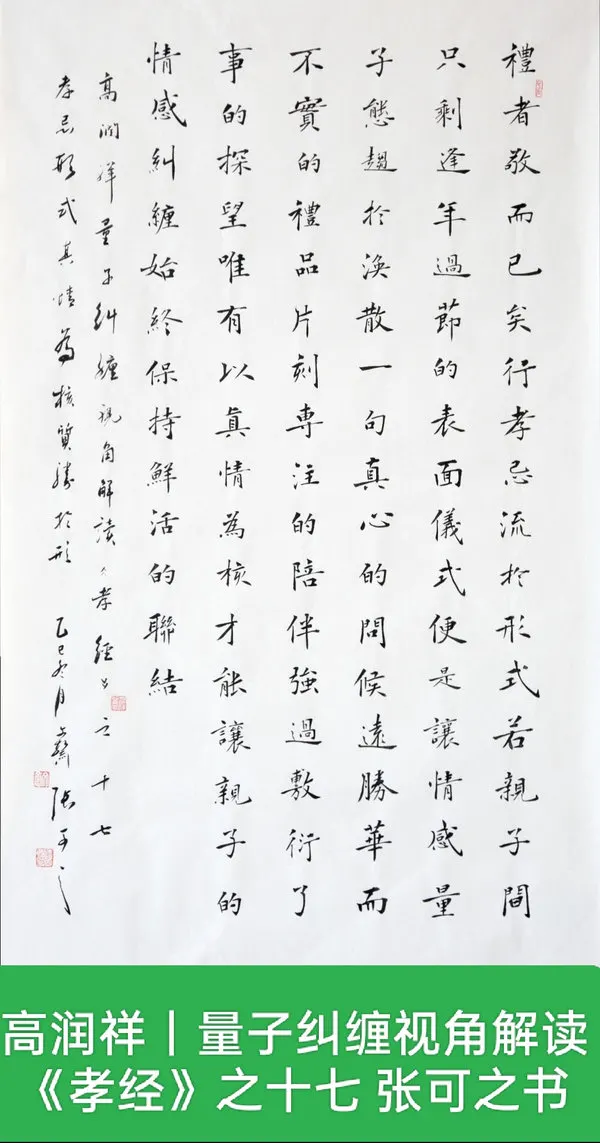 禮者敬而已矣行孝忌流於形式若親子間
只剩逢年過節的表面儀式便是讓情感量
子態趨於渙散一句真心的問候遠勝華而
不實的禮品片刻專注的陪伴強過敷衍了
事的探望唯有以眞情為核才能讓親子的
情感糾纏始終保持鮮活的聯結
高潤祥量子糾纏視角解讀《孝經》之十七
孝忌形式真情為核質勝於形 乙巳冬月 張可之
高润祥丨量子纠缠视角解读
《孝经》之十七 张可之书